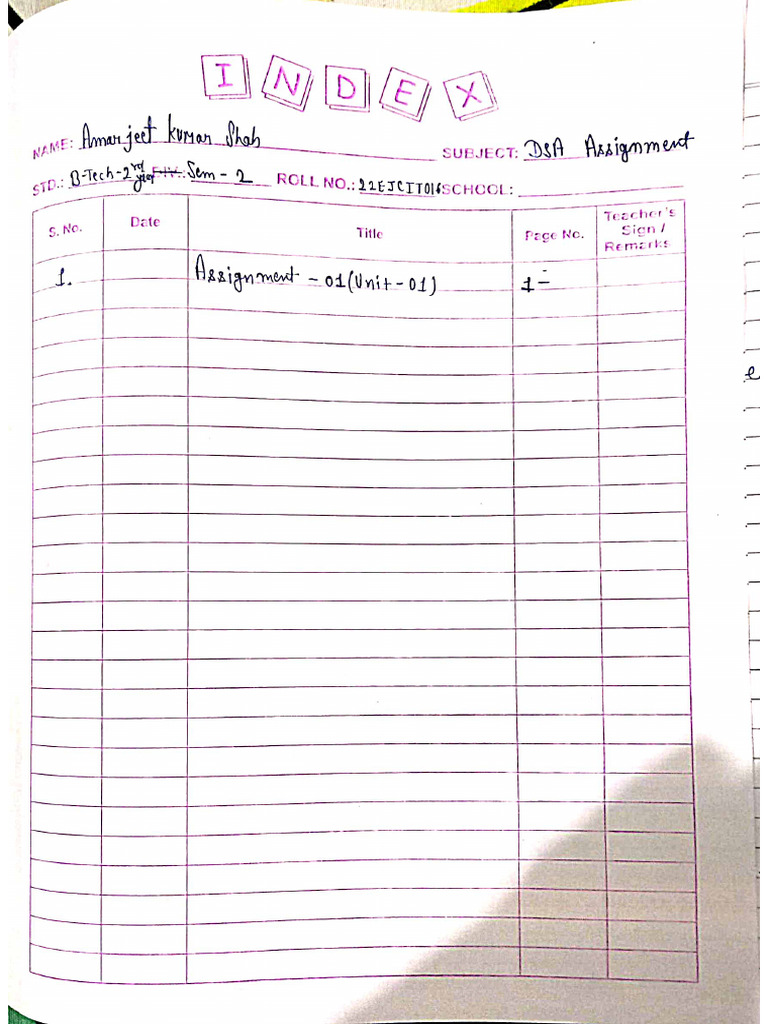 INDEX
NAME: Amarjeet kumar Shah SUBJECT: DSA Assignment
STD.: B-Tech-2nd year DIV. Sem-2 ROLL NO.: 22EJCIT016 SCHOOL:
S. No. Date Title Page No. Teacher's Sign / Remarks
1. Assignment - 01(Unit-01) 1-
e